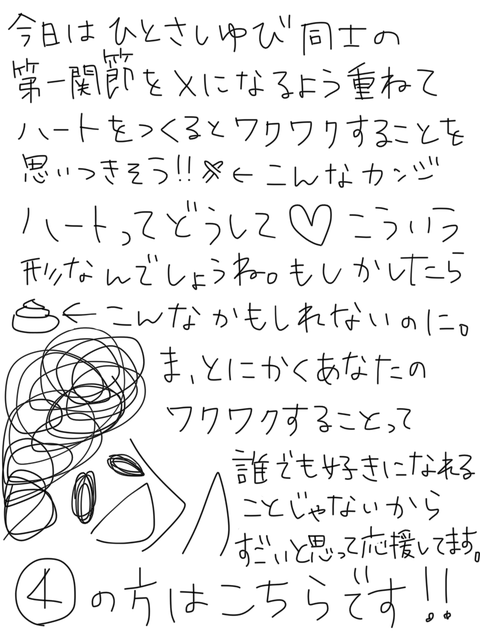 今日は ひとさしゆび 同士の
第一関節を メになるよう 重ねて
ハートをつくると ワクワクすることを
思いつきそう!! ← こんなカンジ
ハートって どうして ♡ こういう
形なんでしょうね。もしかしたら
← こんなかもしれないのに。
ま、とにかくあなたの
ワクワクすることって
誰でも好きになれる
ことじゃないから
すごいと思って応援してます。
④ の方はこちらです!!